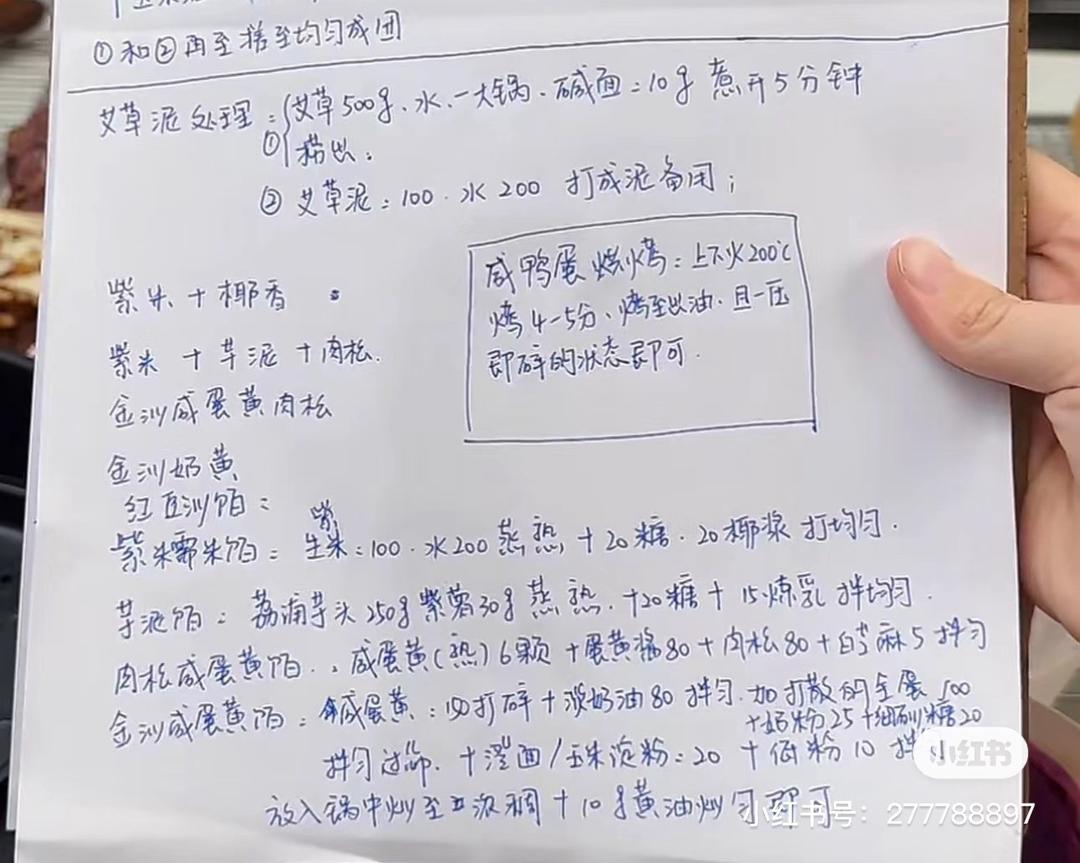 ①和②再至揉至均匀成团
艾草泥处理:①艾草500g、水、一大锅、碱面:10g 煮开5分钟
捞出。
② 艾草泥:100.水200 打成泥备用;
咸鸭蛋烘烤:上下火200℃
烤4-5分、烤至出油.且一压
即碎的状态即可.
紫米+椰香
紫米+芋泥+肉松.
金沙咸蛋黄肉松
金沙奶黄
红豆沙馅:
紫
紫米糯米馅:生米:100.水200蒸熟+20糖.20椰浆打均匀.
芋泥馅:荔浦芋头250g紫薯30g蒸熟.+20糖+15炼乳拌均匀.
肉松咸蛋黄馅:咸蛋黄(熟)6颗+蛋黄酱80+肉松80+白芝麻5拌匀
金沙咸蛋黄馅:咸蛋黄:打碎+淡奶油80拌匀.加打散的全蛋100
+奶粉25+细砂糖20
拌匀过筛.+澄面/玉米淀粉:20+低粉10拌
放入锅中炒至浓稠+10g黄油炒匀即可
小红书
小红书号:277788897